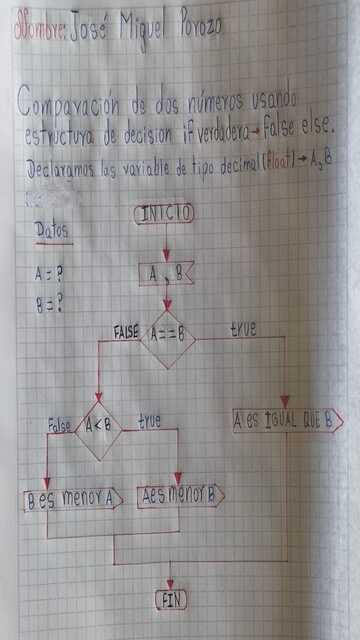 Nombre: José Miguel Porozo
Comparación de dos números usando
estructura de decision if verdadera → false else.
Declaramos las variable de tipo decimal (float) → A, B
Datos
A = ?
B = ?
INICIO
A , B
A==B
FALSE
true
A<B
False
true
A es IGUAL QUE B
B es menor A
A es menor B
FIN